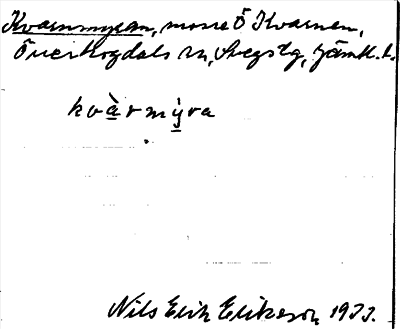 Kvarnmyran, mosse Ö Kvarnen,
Överhogdals sn, Svegs tg, Jämtl. l.
kvàrmỳra
Nils Erik Erikson 1933.